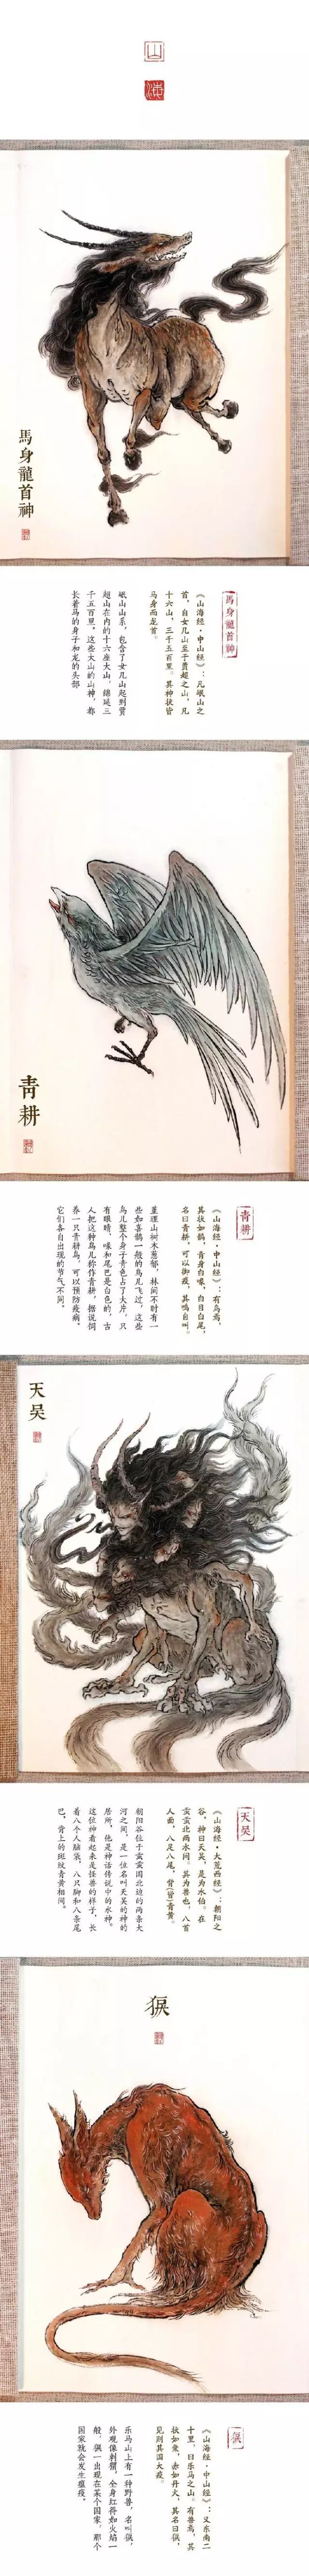 山
海
馬身龍首神
馬身龍首神
《山海经·中山经》：凡岷山之
首，自女几山至于贾超之山，凡
十六山，三千五百里。其神状皆
马身而龙首。
岷山山系，包含了女几山起到贾
超山在内的十六座大山，绵延三
千五百里。这些大山的山神，都
长着马的身子和龙的头部
青耕
青耕
《山海经·中山经》：有鸟焉，
其状如鹊，青身白喙，白目白尾，
名曰青耕，可以御疫，其鸣自叫。
堇理山树木葱郁，林间不时有一
些如喜鹊一般的鸟儿飞过，这些
鸟儿整个身子青色占了大片，只
有眼睛、喙和尾巴是白色的，古
人把这种鸟儿称作青耕，据说饲
养一只青耕鸟，可以预防疫病。
它们各自出现的节气不同。
天吴
天吴
《山海经·大荒西经》：朝阳之
谷，神曰天吴，是为水伯。在
北两水间。其为兽也，八首
人面，八足八尾，背（皆）青黄。
朝阳谷位于国北边的两条大
河之间，是一位名叫天吴的神的
居所，他是神话传说中的水神。
这位神看起来是怪兽的样子，长
着八个人脑袋，八只脚和八条尾
巴，背上的斑纹青黄相间。
㺅
㺅
《山海经·中山经》：又东南二
十里，曰乐马之山。有兽焉，其
状如彙，赤如丹火，其名曰㺅，
见则其国大疫。
乐马山上有一种野兽，名叫㺅，
外观像刺猬，全身红得如火焰一
般，㺅一出现在某个国家，那个
国家就会发生瘟疫。